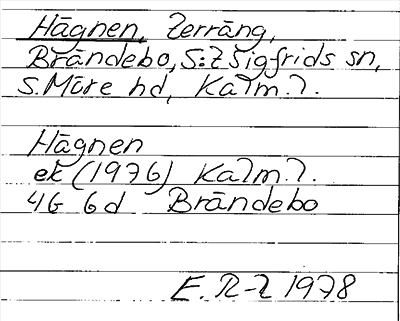 Hägnen, terräng,
Brändebo, S:t Sigfrids sn,
S. Möre hd, Kalm. l.
Hägnen
ek (1976) Kalm. l.
4G 6d Brändebo
E. R-l 1978